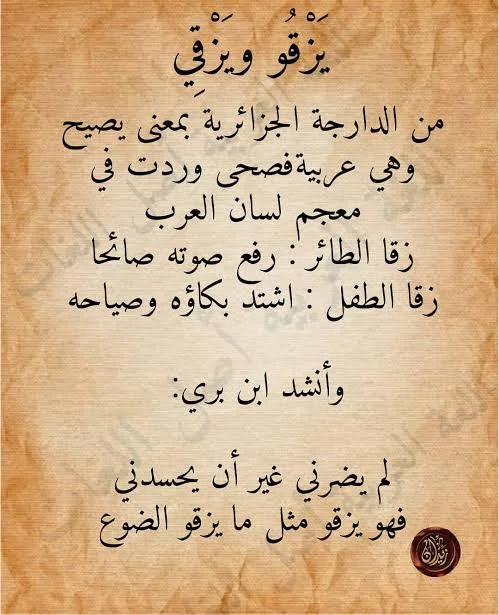 يَزْقُو ويَزْقِي
من الدارجة الجزائرية بمعنى يصيح
وهي عربيةفصحى وردت في
معجم لسان العرب
زقا الطائر : رفع صوته صائحا
زقا الطفل : اشتد بكاؤه وصياحه
وأنشد ابن بري:
لم يضرني غير أن يحسدني
فهو يزقو مثل ما يزقو الضوع
زيدان